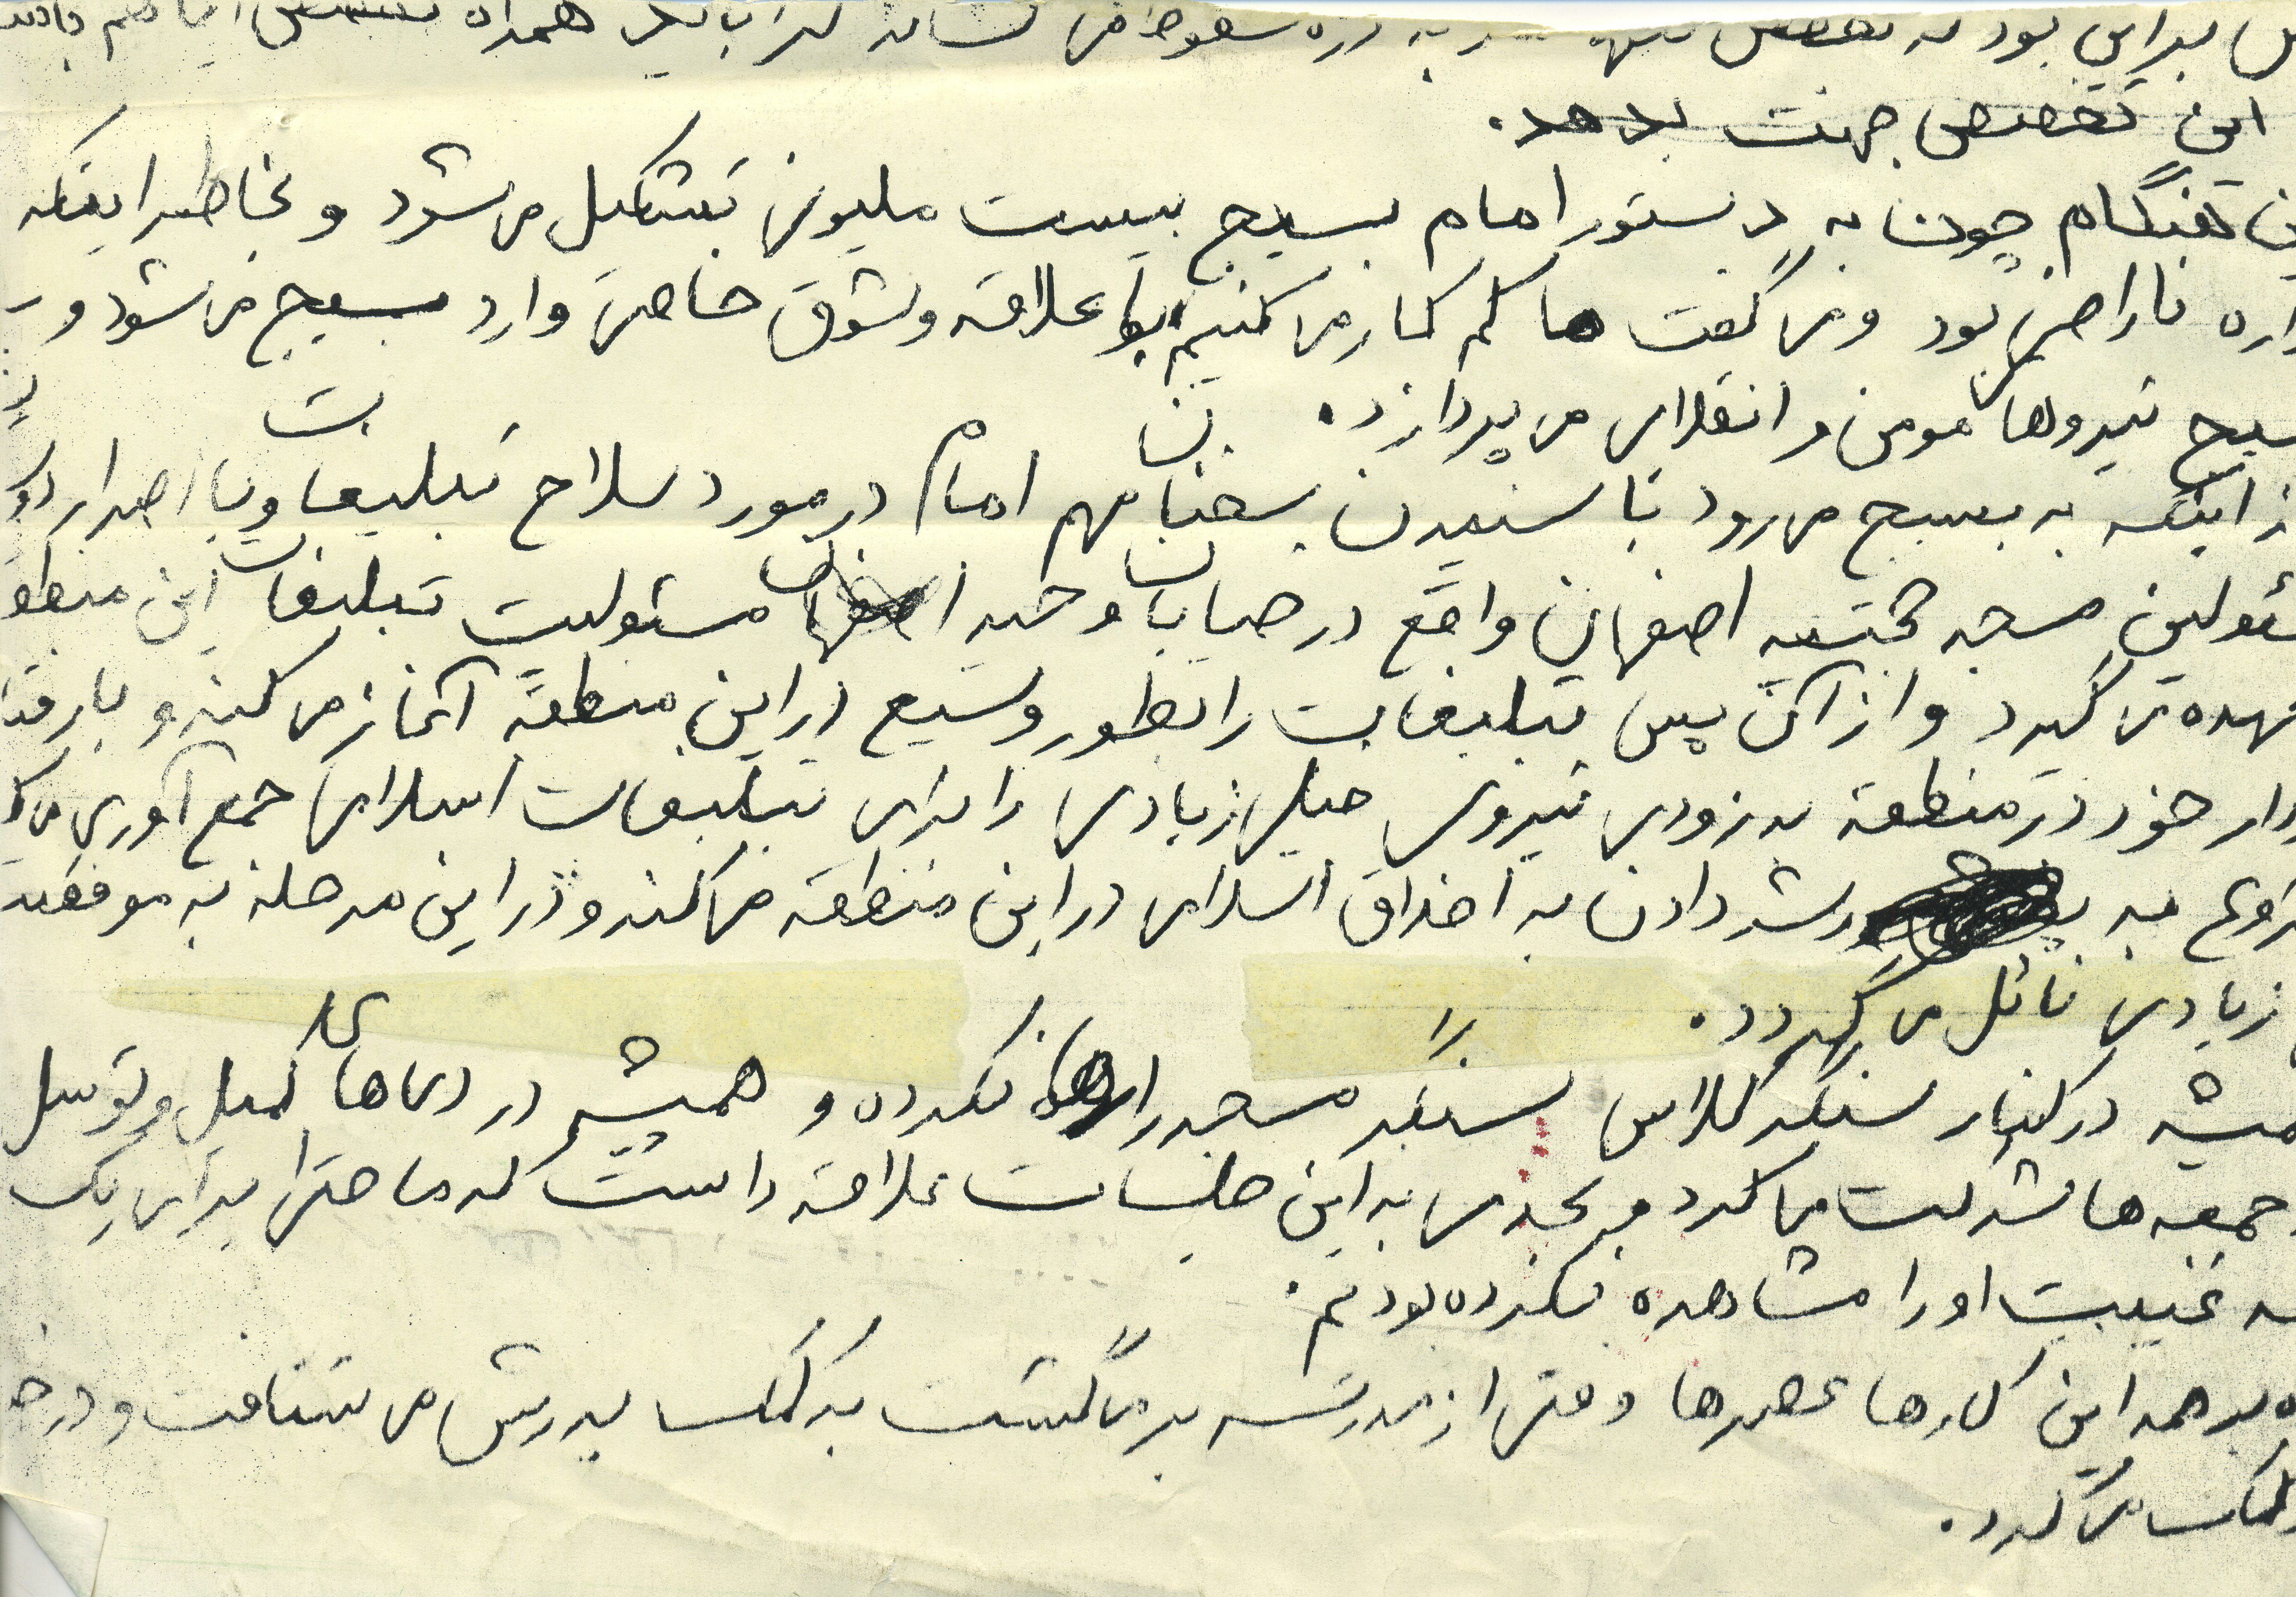 بر این بود که تخصص به دره سقوط می کشاند زیرا باید همراه تخصص ایمان هم باشد
این تخصص جهت بدهد.
این هنگام چون به دستور امام بسیج بیست ملیونی تشکیل می شود و بخاطر اینکه
ناراضی بود و می گفت ما کم کار می کنیم با علاقه و شوق خاصی وارد بسیج می شود و
بسیج نیروهای مومن و انقلابی می پردازد.
از اینکه به بسیج می رود با شنیدن سخنان مهم امام در مورد سلاح تبلیغات و با اصرار
مسئولین مسجد مجتبیه اصفهان واقع در خیابان وحید اصفهان مسئولیت تبلیغات این منطقه
عهده می گیرد و از آن پس تبلیغات را بطور وسیع در این منطقه آغاز می کند و با رفتار
خود در منطقه به زودی نیروی خیلی زیادی را برای تبلیغات اسلامی جمع آوری می
شروع به رشد دادن به اخلاق اسلامی در این منطقه می کند و در این مرحله به موفقیت
زیادی نائل می گردد.
همیشه در کنار سنگر کلاس سنگر مسجد را رها نکرده و همیشه در دعاهای کمیل و توسل
جمعه ها شرکت می کرد و بحدی به این جلسات علاقه داشت که ما حتی برای یک
غیبت او را مشاهده نکرده بودیم.
بر همه این کارها عصرها وقتی از مدرسه بر می گشت به کمک پدرش می شتافت و در
کمک می کرد.